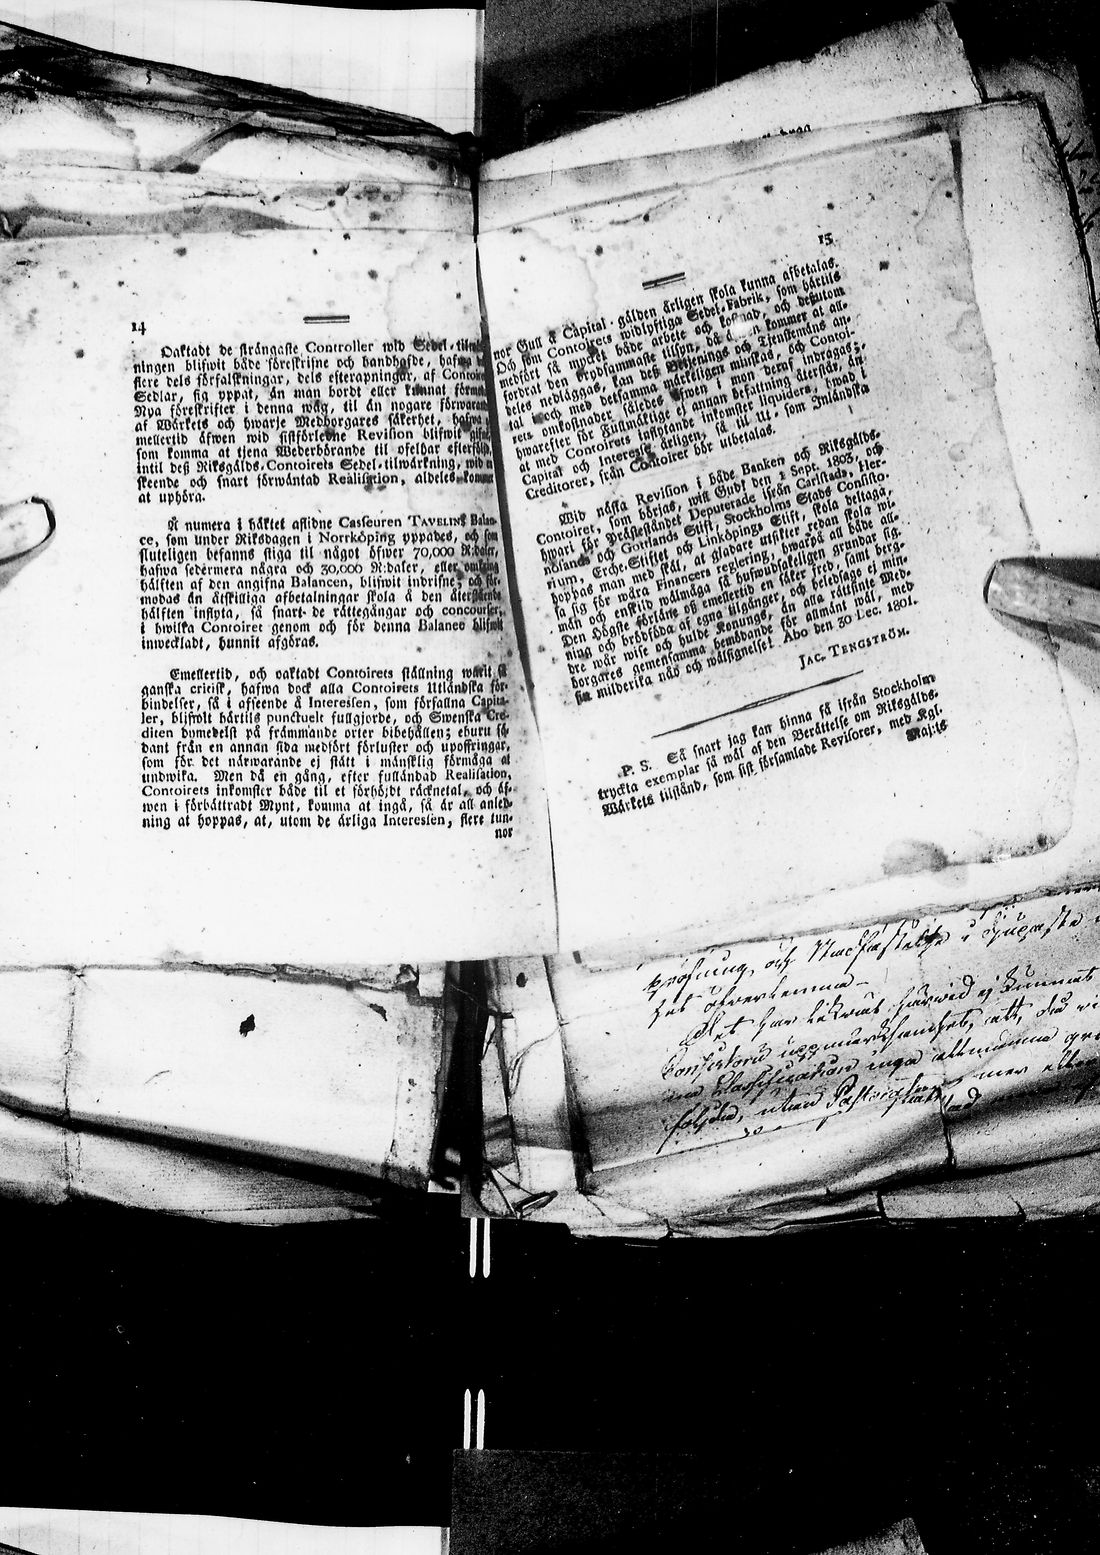 14
Oaktadt de strängaste Controller wid Sedel-tilwerk-
ningen blifwit både föreskrifne och handhafde, hafwa
flere dels förfalskningar, dels efterapningar, af Contoirets
Sedlar, sig yppat, än man bordt eller kunnat förmoda.
Nya föreskrifter i denna wäg, til än nogare förwarande
af Wärkets och hwarje Medborgares säkerhet, hafwa
mellertid äfwen wid sistförledne Revision blifwit gifne,
som komma at tjena Wederbörande til ofelbar efterföljd,
intil deß Riksgälds-Contoirets Sedel-tilwärkning, wid en
skeende och snart förwäntad Realisation, aldeles kommer
at uphöra.
Å numera i häktet aflidne Casseuren TAVELINS Balan-
ce, som under Riksdagen i Norrköping yppades, och som
sluteligen befanns stiga til något öfwer 70,000 R:daler,
hafwa sedermera några och 30,000 R:daler, eller omkring
hälften af den angifna Balancen, blifwit indrifne; och för-
modas än åtskilliga afbetalningar skola å den återstående
hälften inflyta, så snart de rättegångar och concourser,
i hwilka Contoiret genom och för denna Balance blifwit
inwecklad, hunnit afgöras.
Emellertid, och oaktadt Contoirets ställning warit så
ganska critisk, hafwa dock alla Contoirets Utländska för-
bindelser, så i afseende å Interessen, som förfallna Capita-
ler, blifwit härtils punctuelt fullgjorde, och Swenska Cre-
diten hymedelst på främmande orter bibehållen; ehuru så-
dant från en annan sida medfört förluster och upoffringar,
som för det närwarande ej stått i mänsklig förmåga at
undwika. Men då en gång, efter fulländad Realisation,
Contoirets inkomster både til et förhöjdt räcknetal, och äf-
wen i förbättradt Mynt, komma at ingå, så är all anled-
ning at hoppas, at, utom de årliga Interessen, flere tun-
nor
15
nor Gull å Capital-gälden årligen skola kunna afbetalas.
Och som Contoirets widlyftiga Sedel-Fabrik, som härtils
medfört så mycket både arbete och kostnad, och desutom
fordrat den sorgfammaste tilsyn, då kommer at al-
deles nedläggas, kan deß Betjenings och Tjenstemäns an-
tal och med detsamma märkeligen minskas, och Contoi-
rets omkostnader således äfwen i mon deraf indragas;
hwarefter för Fullmäktige ej annan befattning återstår, än
at med Contoirets inflytande inkomster liquidera, hwad i
Capital och Interesse årligen, så til Ut- som Inländska
Creditorer, från Contoiret bör utbetalas.
Wid nästa Revision i både Banken och Riksgälds-
Contoiret, som börjas, will Gud! den 1 Sept. 1803, och
hwari för Prästeståndet Deputerade ifrån Carlstads, Her-
nösands och Gottlands Stift, Stockholms Stads Consisto-
rium, Erche-Stiftet och Linköpings Stift, skola deltaga,
hoppas man med skäl, at gladare utsikter redan skola wi-
sa sig för wåra Financers reglering, hwarpå all både all-
män och enskild wälmåga så hufwudsakeligen grundar sig.
Den Högste förläne oß emellertid en säker fred, samt berg-
ning och brödföda af egna tilgångar, och beledsage ej min-
dre wår wise och hulde Konungs, än alla rättsinte Med-
borgares gemensamma bemödande för allmänt wäl, med
sin milderika nåd och wälsignelse! Åbo den 30 Dec. 1801.
JAC. TENGSTRÖM.
P. S. Så snart jag kan hinna få ifrån Stockholm
tryckta exemplar så wäl af den Berättelse om Riksgälds-
Wärkets tilstånd, som sist församlade Revisorer, med Kgl.
Maj:ts